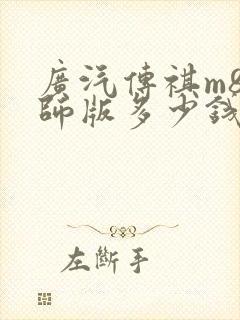 廣汽傳祺m8
師版多少錢
左斷手